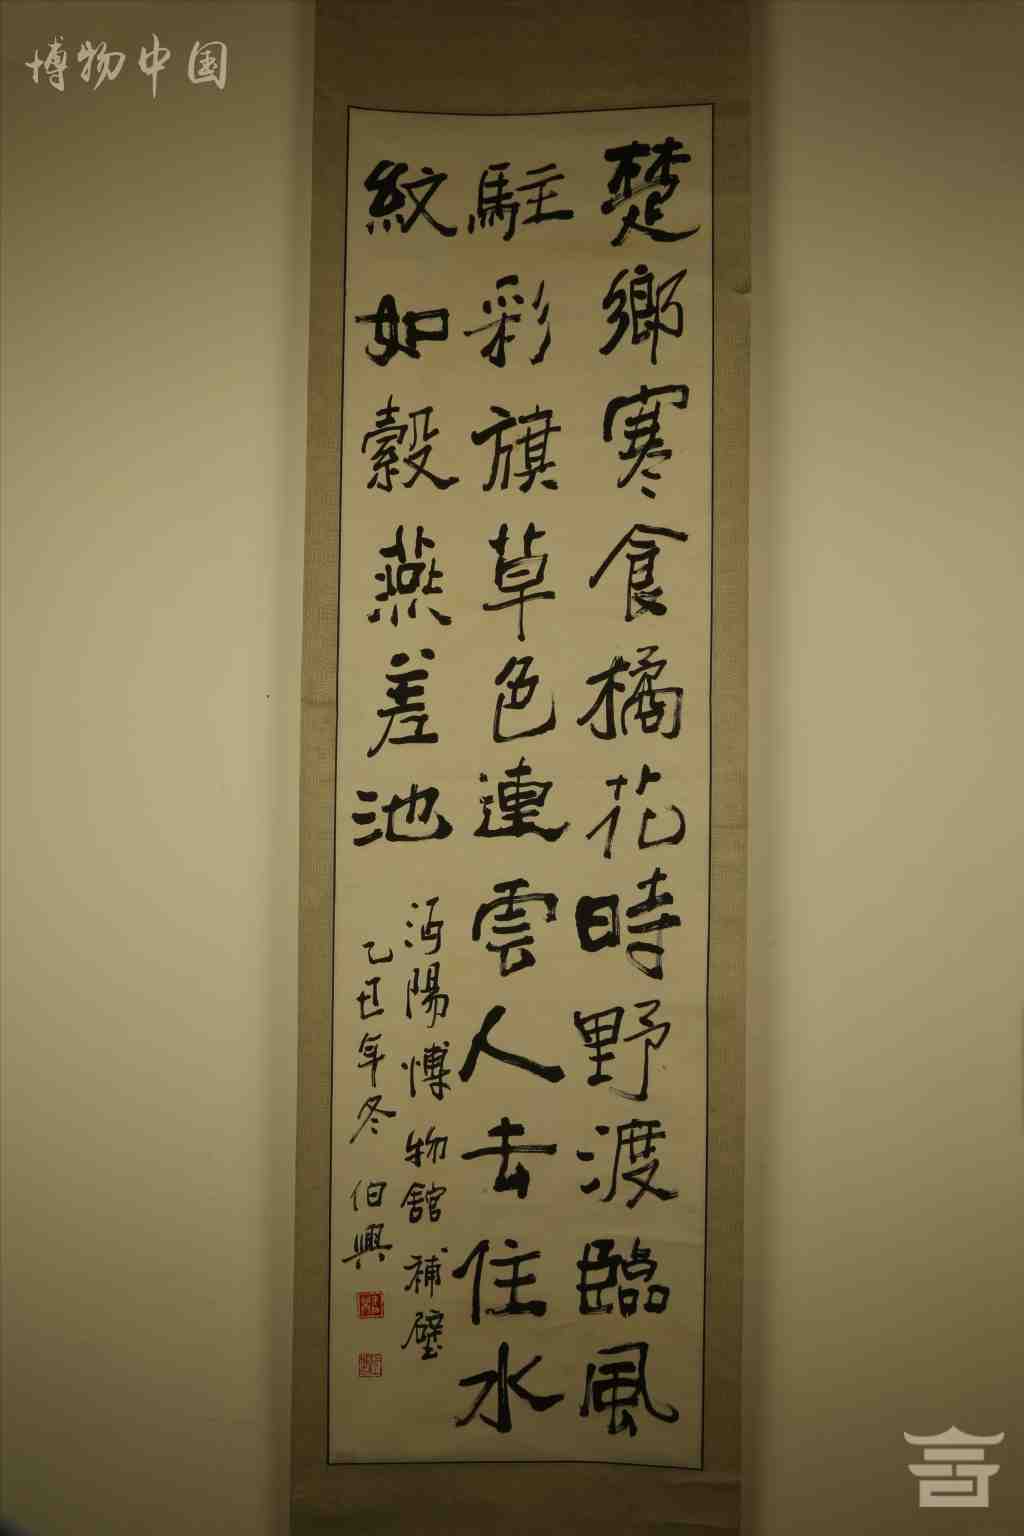 博物中国
楚鄉寒食橘花時野渡臨風
駐彩旗草色連雲人去住水
紋如縠燕差池
沔陽博物館補壁
乙丑年冬 伯興